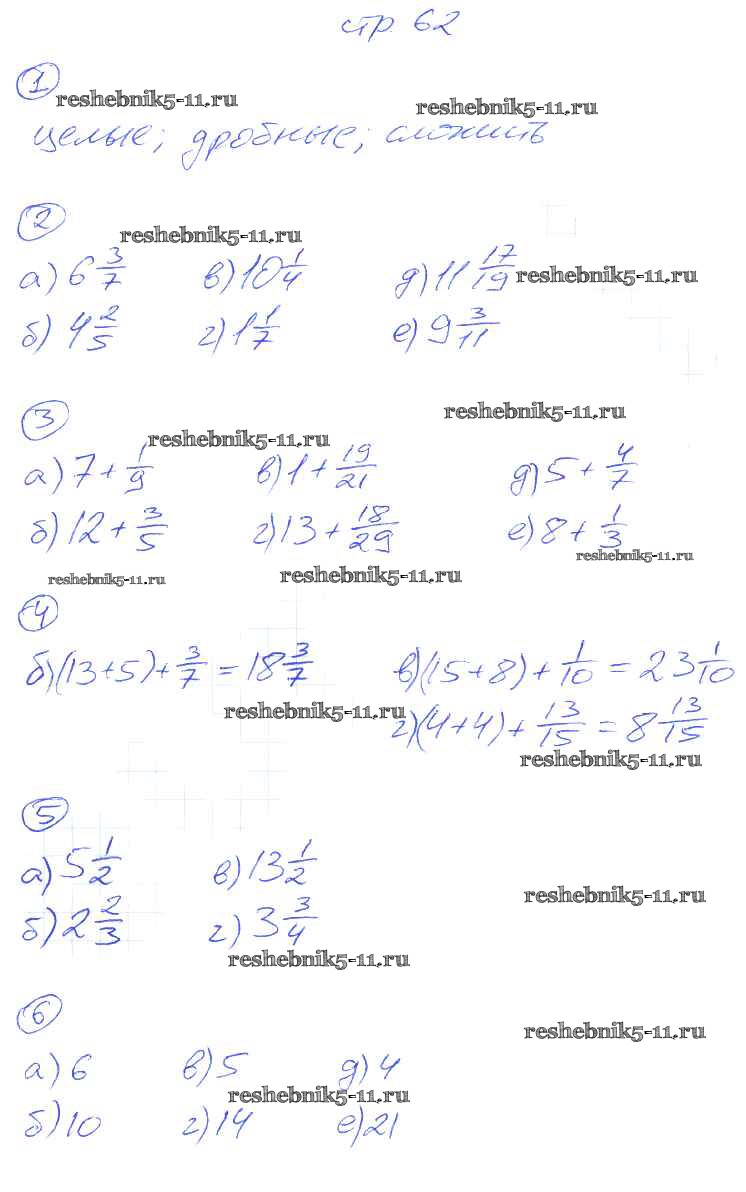 стр. 62
1
reshebnik5-11.ru reshebnik5-11.ru
целые; дробные; сложить
2
reshebnik5-11.ru
а) 6 3/7 в) 10 1/4 д) 11 17/19 reshebnik5-11.ru
б) 4 2/5 г) 1 1/7 е) 9 3/11
3
reshebnik5-11.ru
reshebnik5-11.ru
а) 7 + 1/9 в) 1 + 19/21 д) 5 + 4/7
б) 12 + 3/5 г) 13 + 18/29 е) 8 + 1/3
reshebnik5-11.ru
reshebnik5-11.ru reshebnik5-11.ru
4
б) (13+5) + 3/7 = 18 3/7 в) (15+8) + 1/10 = 23 1/10
reshebnik5-11.ru
г) (4+4) + 13/15 = 8 13/15
reshebnik5-11.ru
5
а) 5 1/2 в) 13 1/2
reshebnik5-11.ru
б) 2 2/3 г) 3 3/4
reshebnik5-11.ru
6
reshebnik5-11.ru
а) 6 в) 5 д) 4
reshebnik5-11.ru
б) 10 г) 14 е) 21